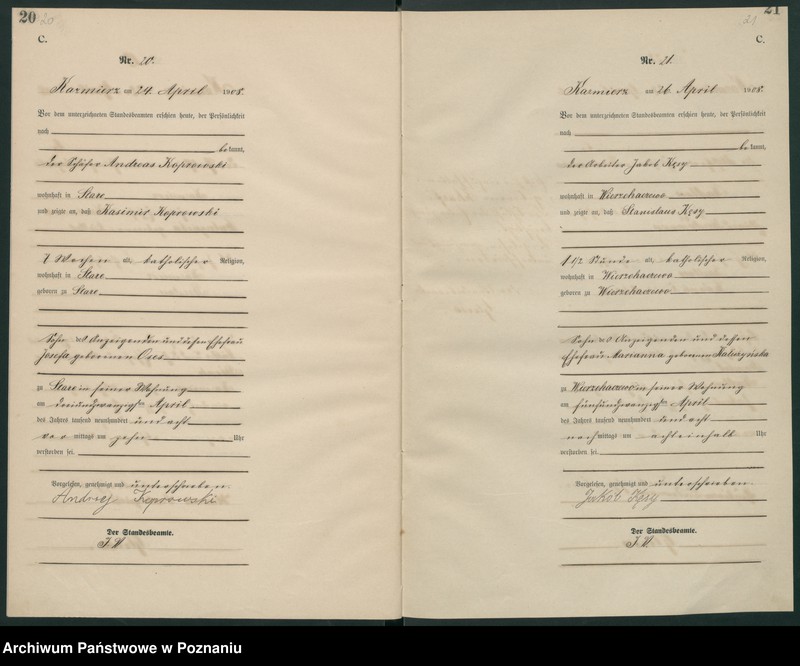 20 20
C.
Nr. 20.
Kazmierz am 24. April 1908.
Vor dem unterzeichneten Standesbeamten erschien heute, der Persönlichkeit
nach
bekannt,
der Schäfer Andreas Koprowski
wohnhaft in Stare
und zeigte an, daß Kasimir Koprowski
7 Wochen alt, katholischer Religion,
wohnhaft in Stare
geboren zu Stare
Sohn des Anzeigenden und dessen Ehefrau
Josefa geborenen
zu Stare in seiner Wohnung
am dreiundzwanzigsten April
des Jahres tausend neunhundert und acht
vor mittags um zehn Uhr
verstorben sei.
Vorgelesen, genehmigt und unterschrieben
Andrzej Koprowski
Der Standesbeamte.
J. V.
21
21
C.
Nr. 21.
Kazmierz am 26. April 1908.
Vor dem unterzeichneten Standesbeamten erschien heute, der Persönlichkeit
nach
bekannt,
der Arbeiter Jakob Kęsy
wohnhaft in Wierzchaczewo
und zeigte an, daß Stanislaus Kęsy
1 1/2 Stunde alt, katholischer Religion,
wohnhaft in Wierzchaczewo
geboren zu Wierzchaczewo
Sohn des Anzeigenden und dessen
Ehefrau Marianna geborenen
zu Wierzchaczewo in seiner Wohnung
am fünfundzwanzigsten April
des Jahres tausend neunhundert und acht
nach mittags um achteinhalb Uhr
verstorben sei.
Vorgelesen, genehmigt und unterschrieben
Jakob Kęsy
Der Standesbeamte.
J. V.
Archiwum Państwowe w Poznaniu